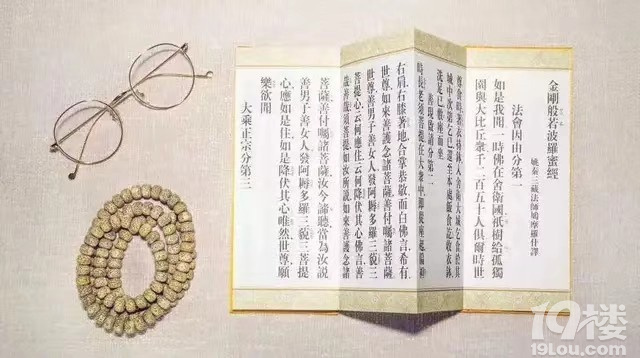 金剛般若波羅蜜經
姚秦三藏法師鳩摩羅什譯
法會因由分第一
如是我聞一時佛在舍衛國祇樹給孤獨
園與大比丘衆千二百五十人俱爾時世
尊食時著衣持鉢入舍衛大城乞食於其
城中次第乞已還至本處飯食訖收衣鉢
洗足已敷座而坐
善現啟請分第二
時長老須菩提在大衆中即從座起偏袒
右肩右膝著地合掌恭敬而白佛言希有
世尊如來善護念諸菩薩善付囑諸菩薩
世尊善男子善女人發阿耨多羅三藐三
菩提心云何應住云何降伏其心佛言善
哉善哉須菩提如汝所說如來善護念諸
菩薩善付囑諸菩薩汝今諦聽當為汝說
善男子善女人發阿耨多羅三藐三菩提
心應如是住如是降伏其心唯然世尊願
樂欲聞
大乘正宗分第三
19楼
19lou.com